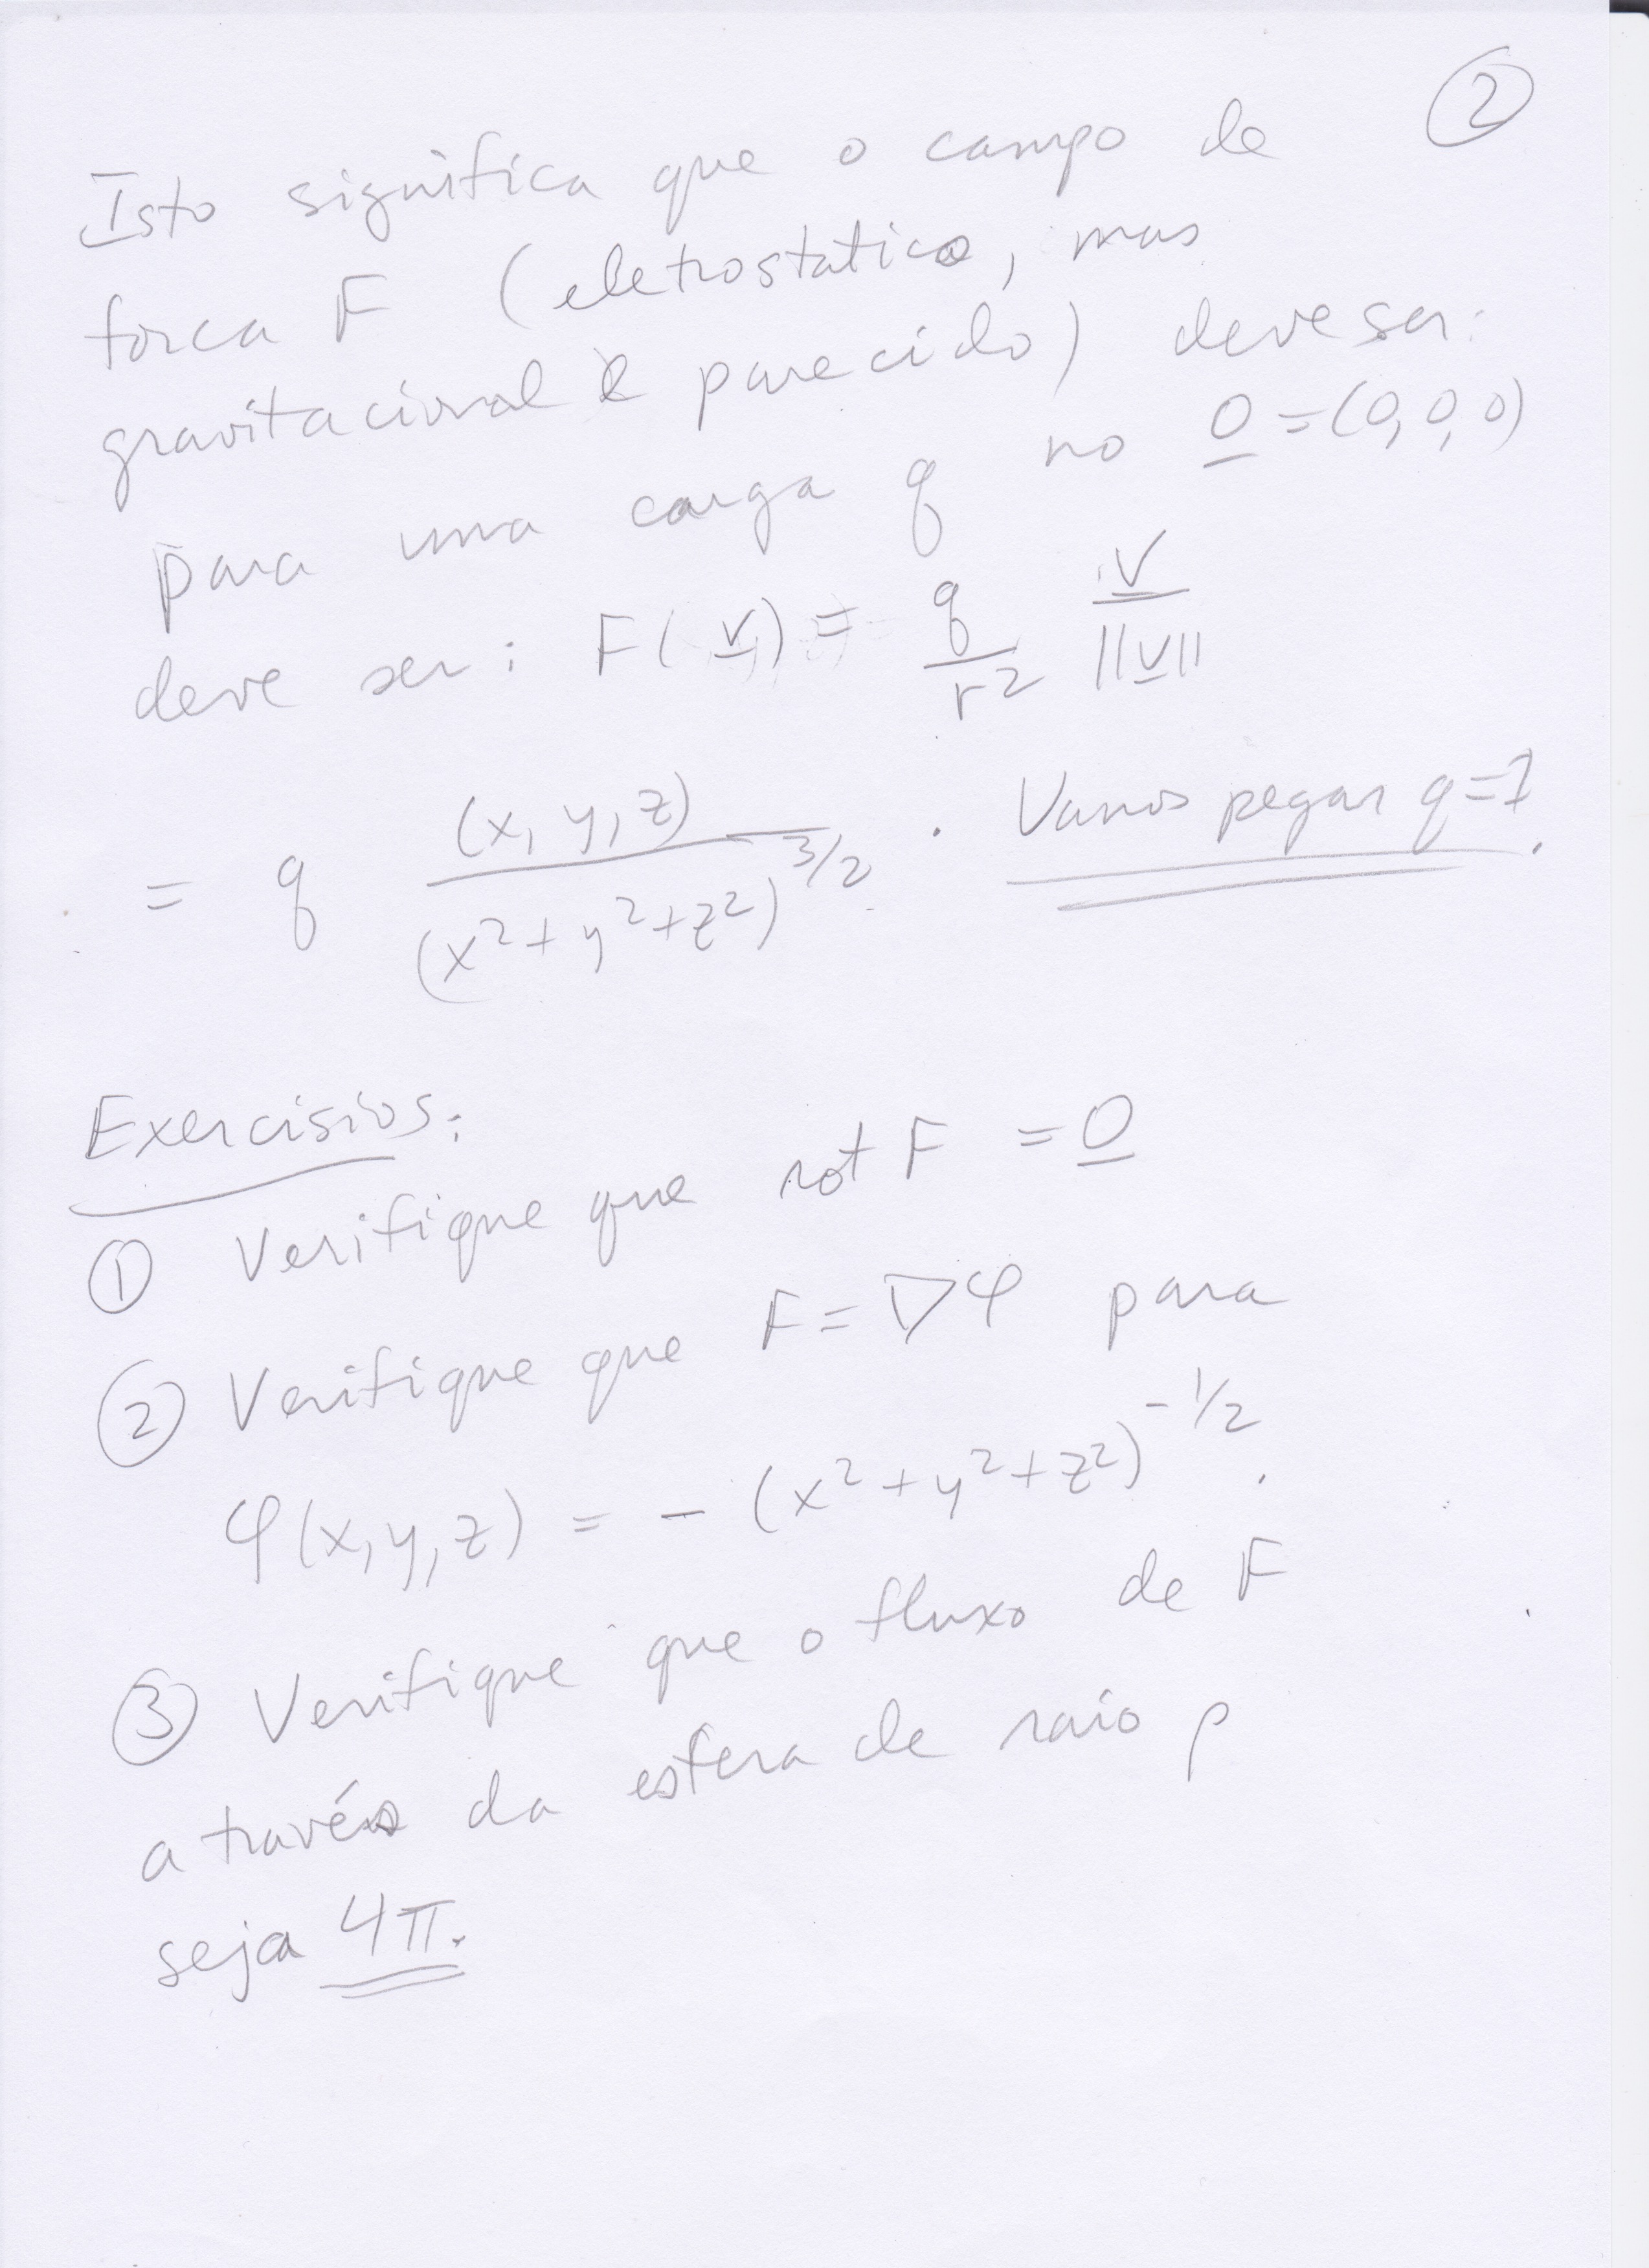 ②
Isto significa que o campo de
força F (eletrostatico, mas
gravitacional é parecido) deve ser:
para uma carga q no 0 = (0, 0, 0)
deve ser: F(v) = q/r² v/||v||
= q (x, y, z)/(x²+y²+z²)^3/2 . Vamos pegar q=1.
Exercisios:
① Verifique que rot F = 0
② Verifique que F = ∇φ para
φ(x, y, z) = - (x²+y²+z²)^-1/2.
③ Verifique que o fluxo de F
através da esfera de raio ρ
seja 4π.